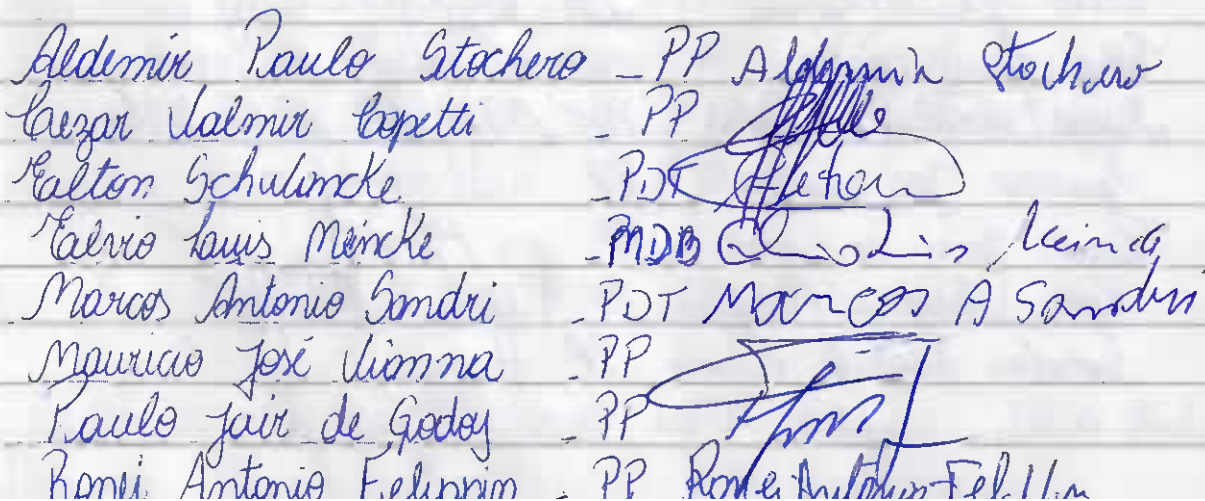 Aldemir Paulo Stochero - PP Aldemir Stochero
Cezar Valmir Copetti - PP
Ealton Schulimcke - PDT
Elvio Luis Meincke - MDB
Marcos Antonio Sandri - PDT Marcos A Sandri
Mauricio José Vianna - PP
Paulo Jair de Godoy - PP
Ronei Antonio Felippin - PP Ronei Antonio Felippin